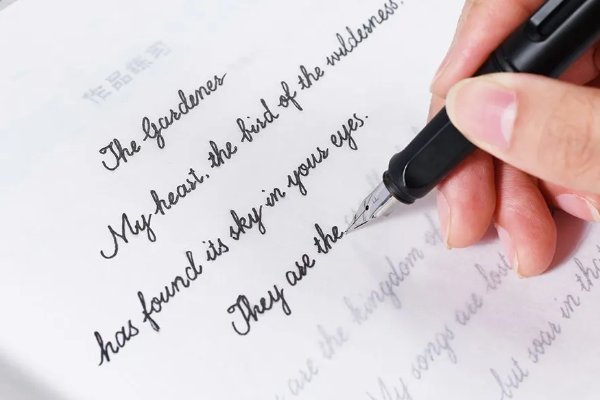 作品练习
The Gardenes
My heart, the bird of the wildesness,
has found its sky in your eyes.
They are the
are the kingdom of
My songs are lost
but soar in that